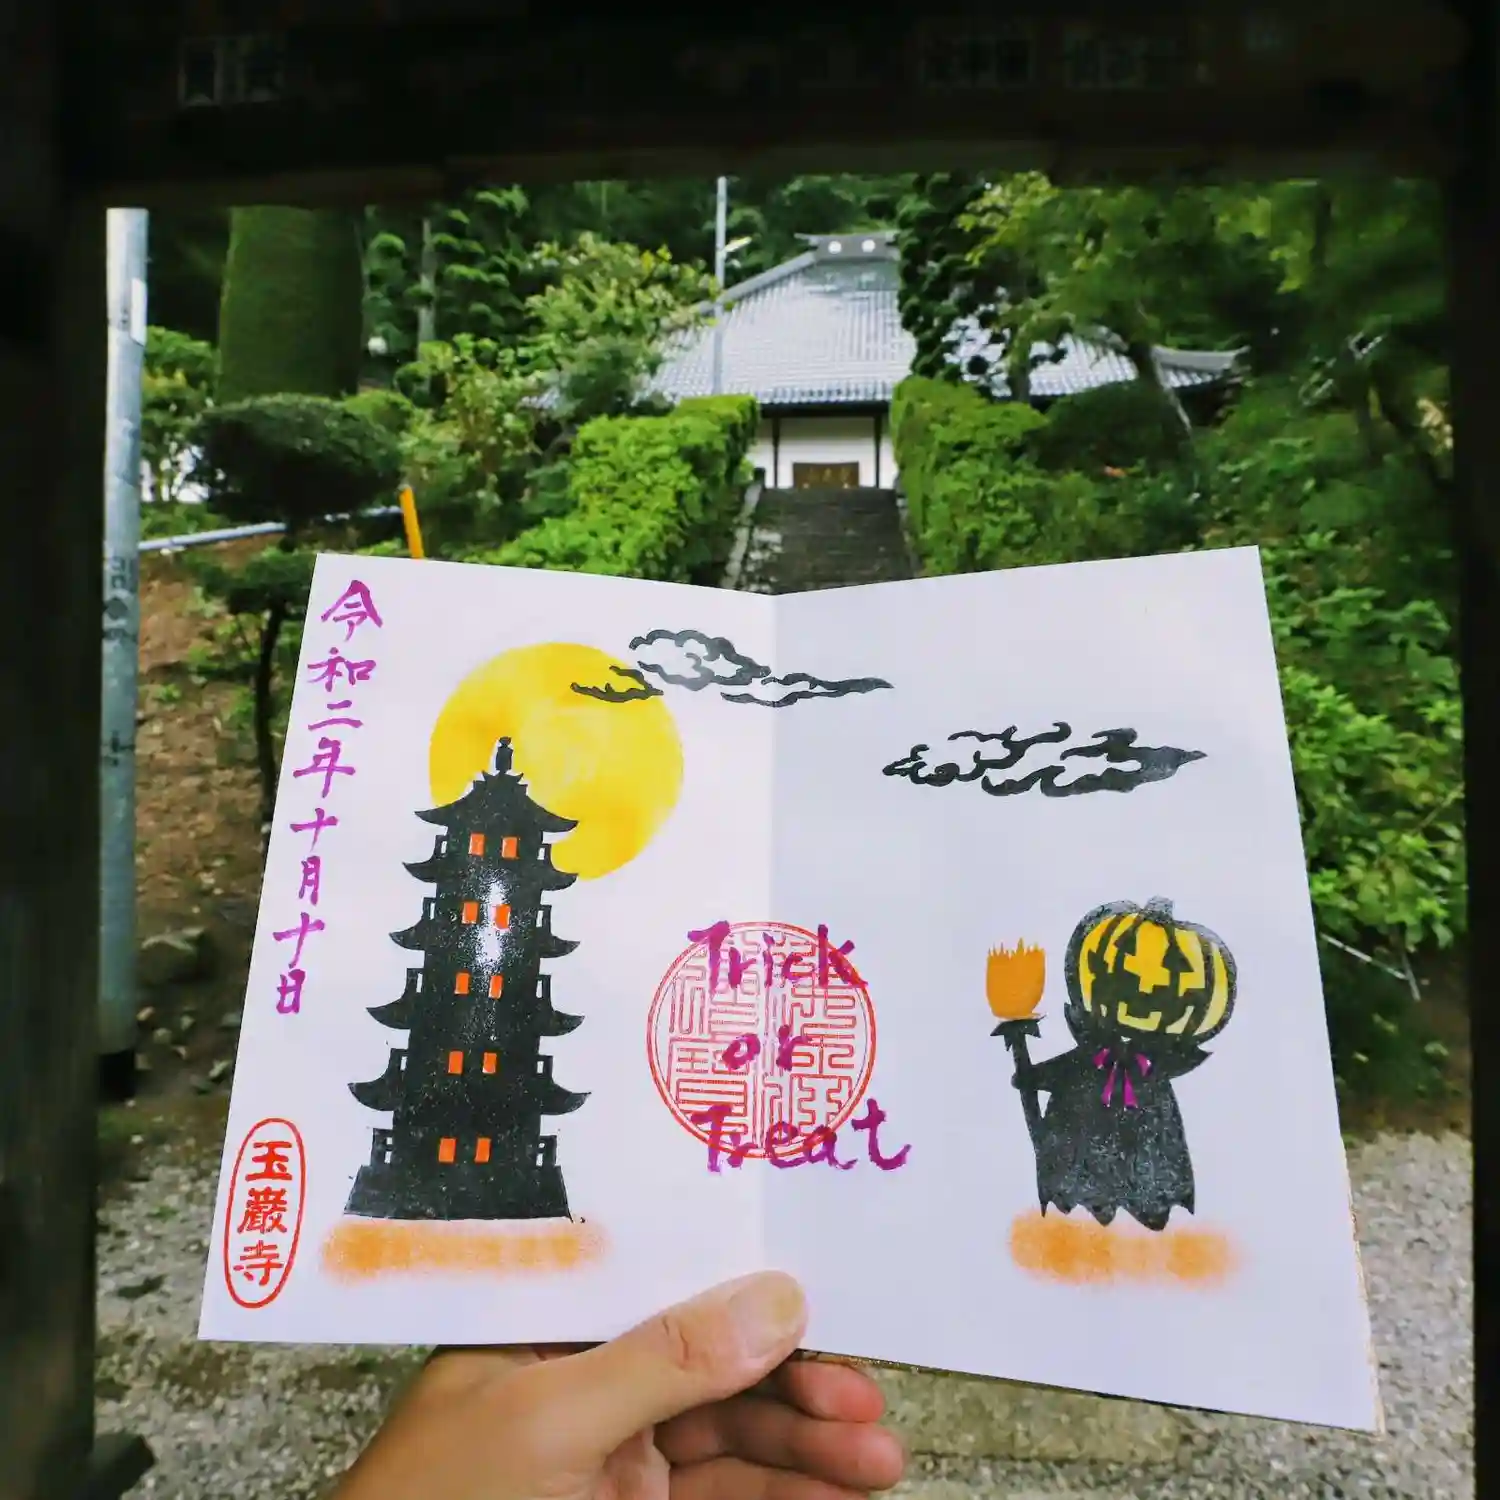 令和二年十月十日
Trick
or
Treat
玉巖寺